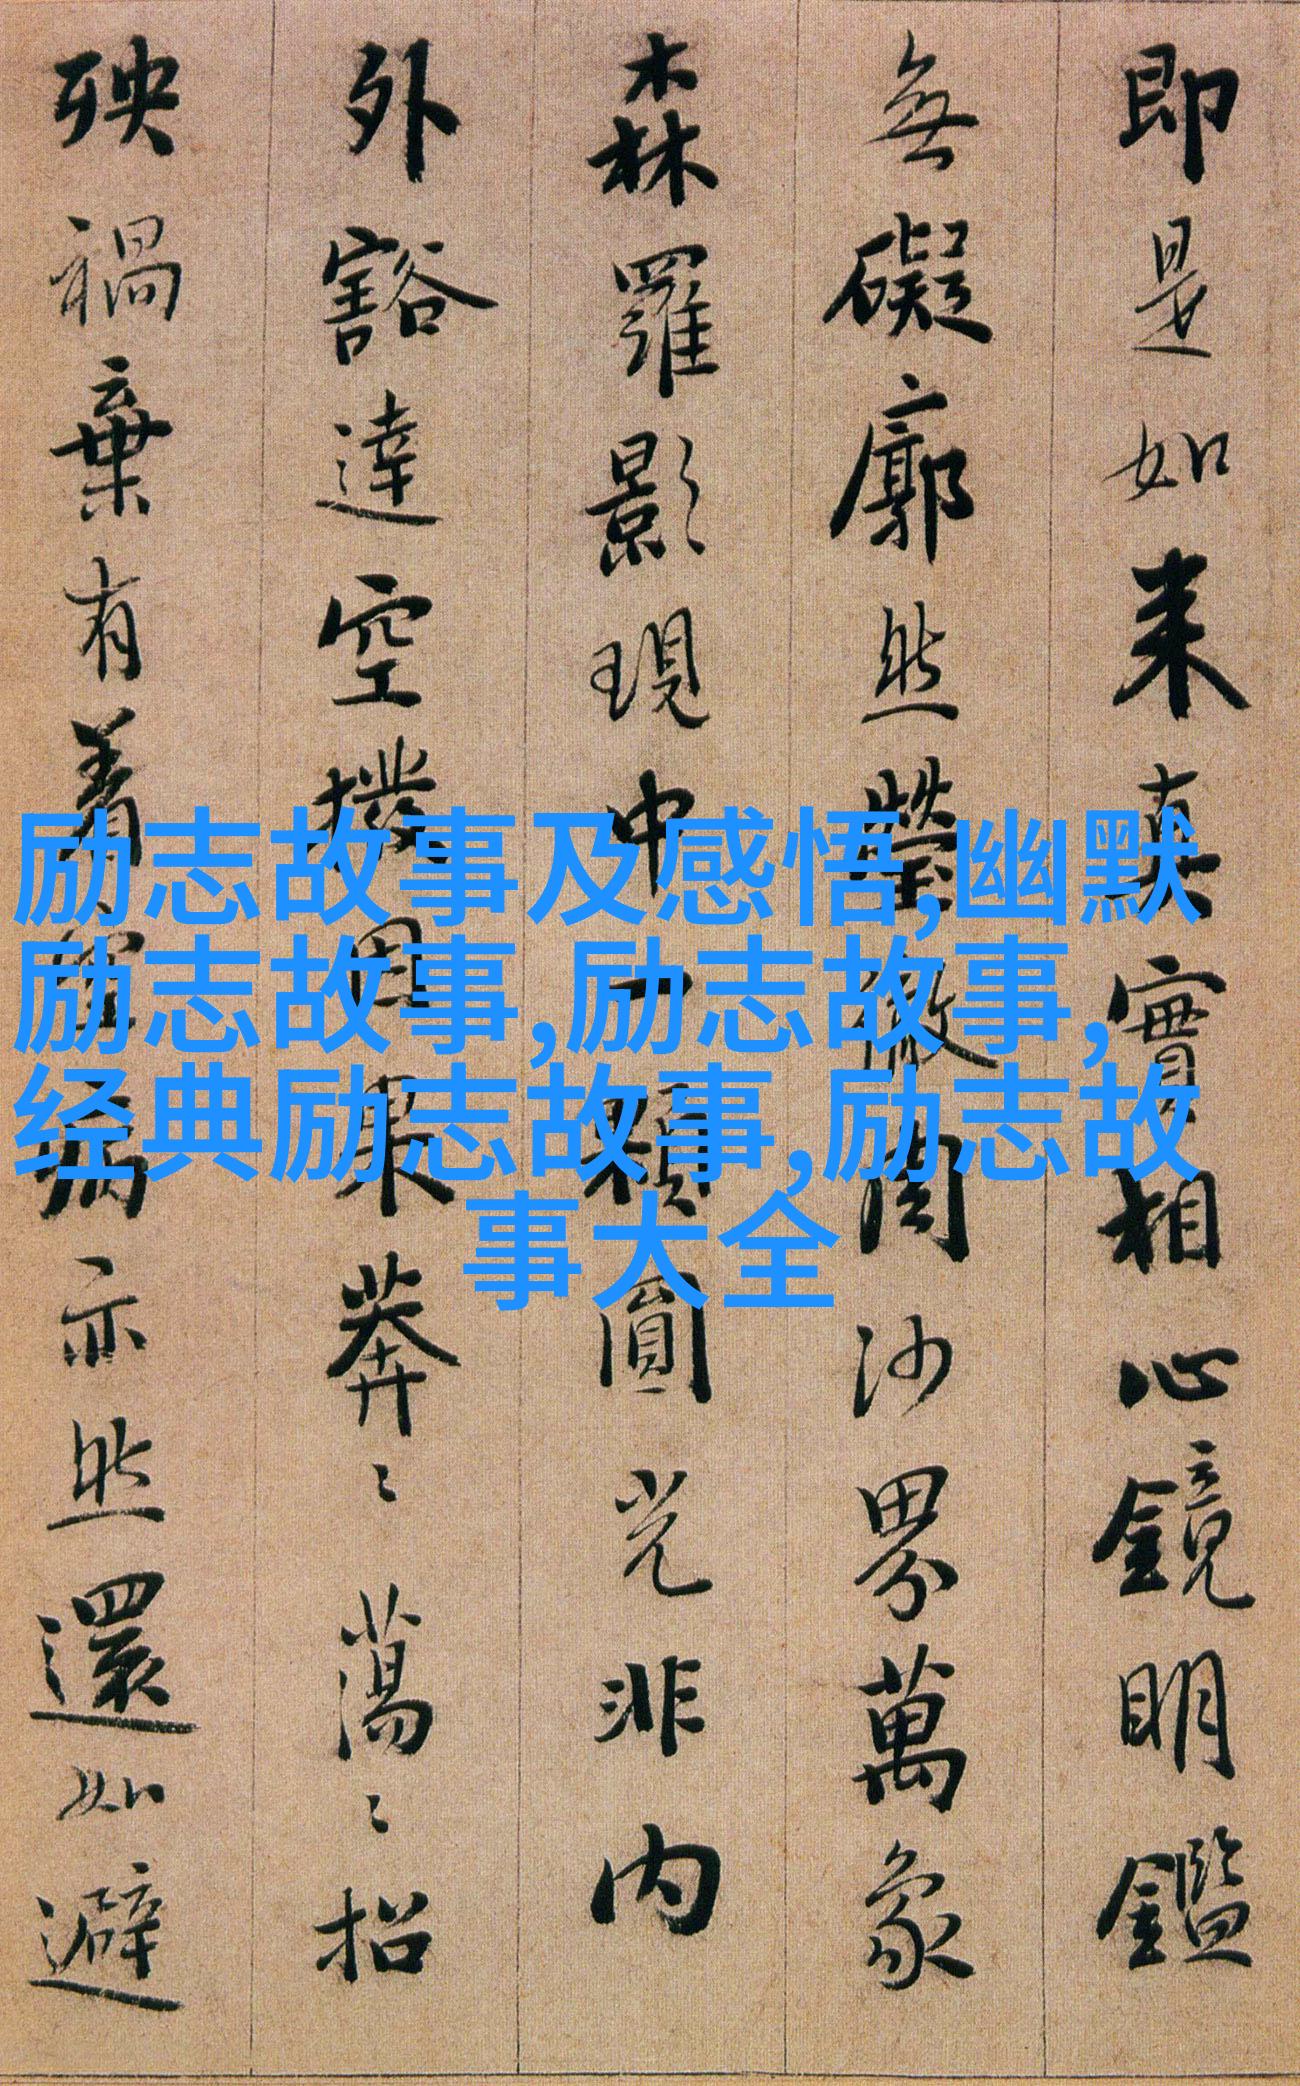 即是如来真實相心鏡明鑑
無礙廓然瑩徹周沙界萬象
森羅影現中一顆圓光非内
外豁達空撥因果莽〻蕩〻招
殃禍棄有着空病亦然還如避
励志故事及感悟,幽默
励志故事,励志故事,
经典励志故事,励志故
事大全